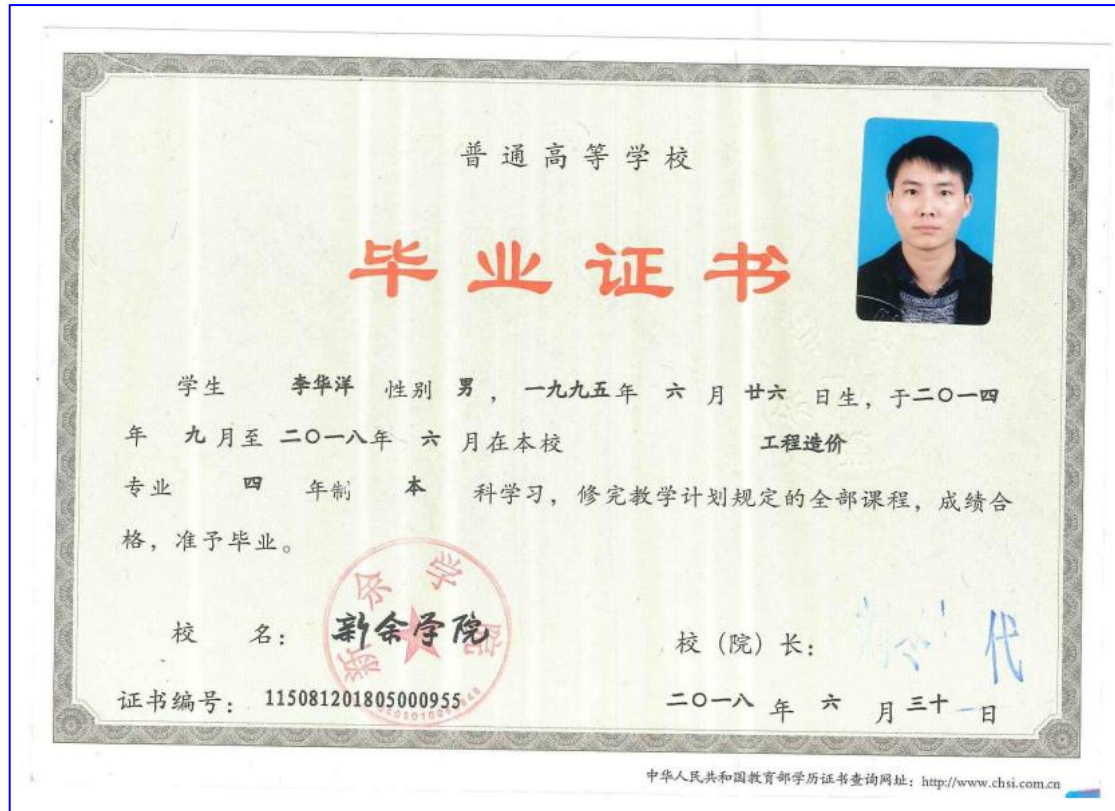 普通高等学校
毕业证书
学生 李华洋 性别 男 ，一九九五年 六 月 廿六 日生，于二〇一四
年 九 月至 二〇一八年 六 月在本校 工程造价
专业 四 年制 本 科学习，修完教学计划规定的全部课程，成绩合
格，准予毕业。
新余学院
校 名： 新余学院
校（院）长： 代
证书编号： 115081201805000955
二〇一八 年 六 月 三十 日
中华人民共和国教育部学历证书查询网址：http://www.chsi.com.cn